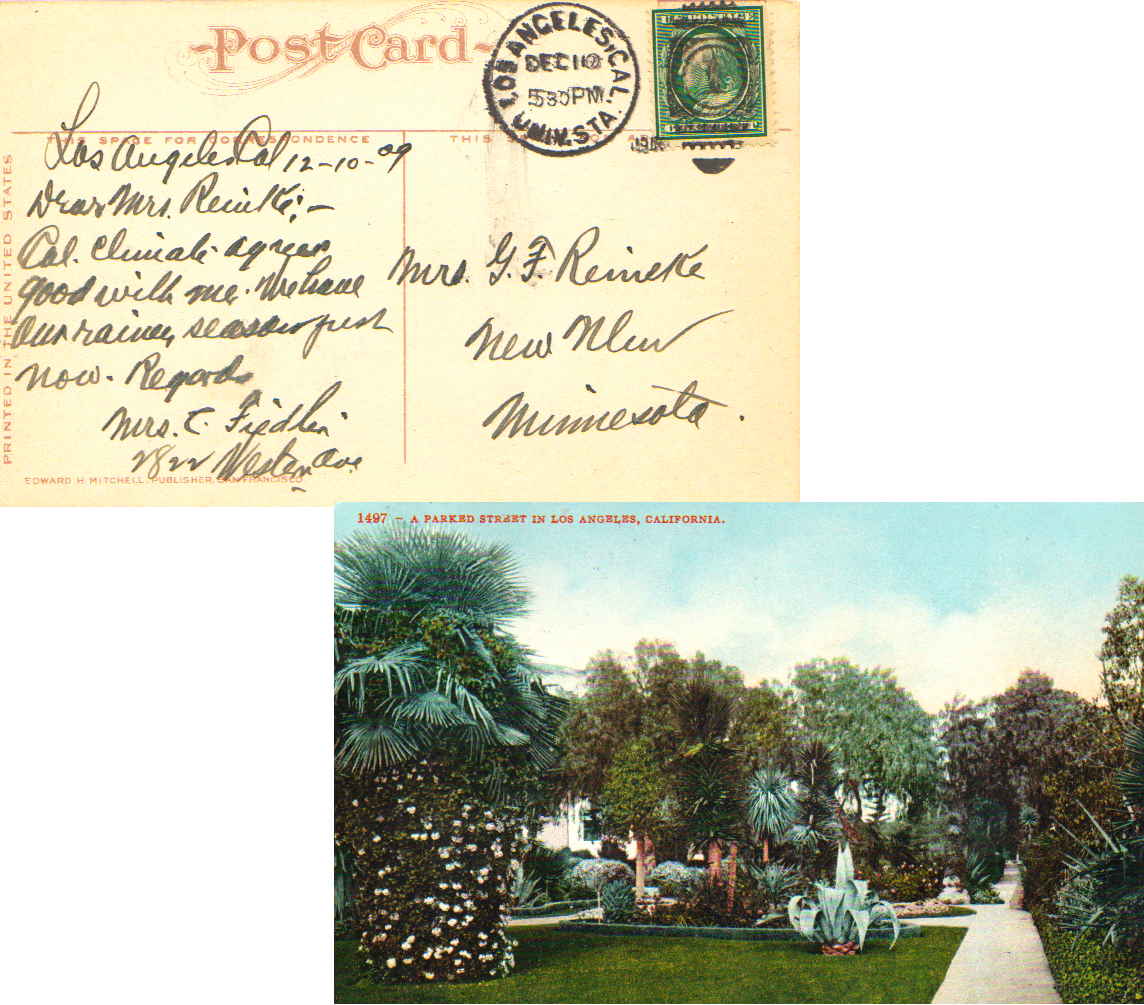 Post Card
LOS ANGELES, CAL.
DEC 10
530 PM
UNIV. STA.
THIS SPACE FOR CORRESPONDENCE
THIS
Los Angeles Cal 12-10-09
Dear Mrs. Reineke:-
Cal. Climate agrees
good with me. We have
our rainey season just
now. Regards
Mrs. C. Fiedler
2822 Western Ave
Mrs. G. F. Reineke
New Ulm
Minnesota.
PRINTED IN THE UNITED STATES
EDWARD H. MITCHELL, PUBLISHER, SAN FRANCISCO
1497 - A PARKED STREET IN LOS ANGELES, CALIFORNIA.